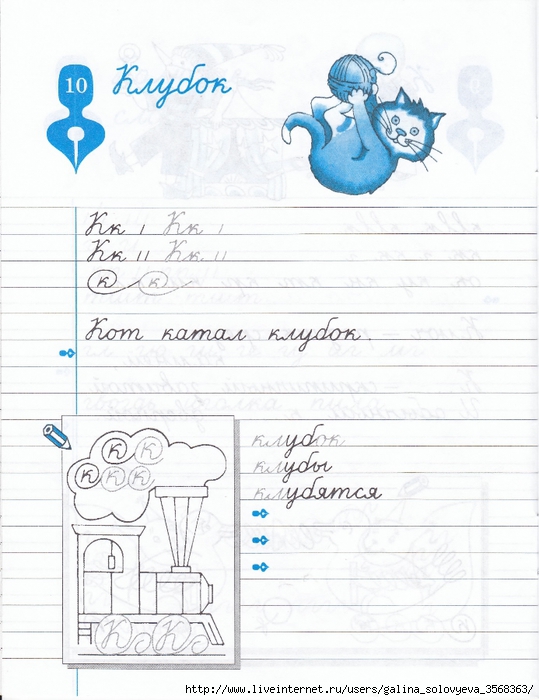 10 Клубок
Кк Кк
Кк Кк
к к
Кот катал клубок.
К К
К К К
клубок
клубы
клубятся
К К
http://www.liveinternet.ru/users/galina_solovyeva_3568363/